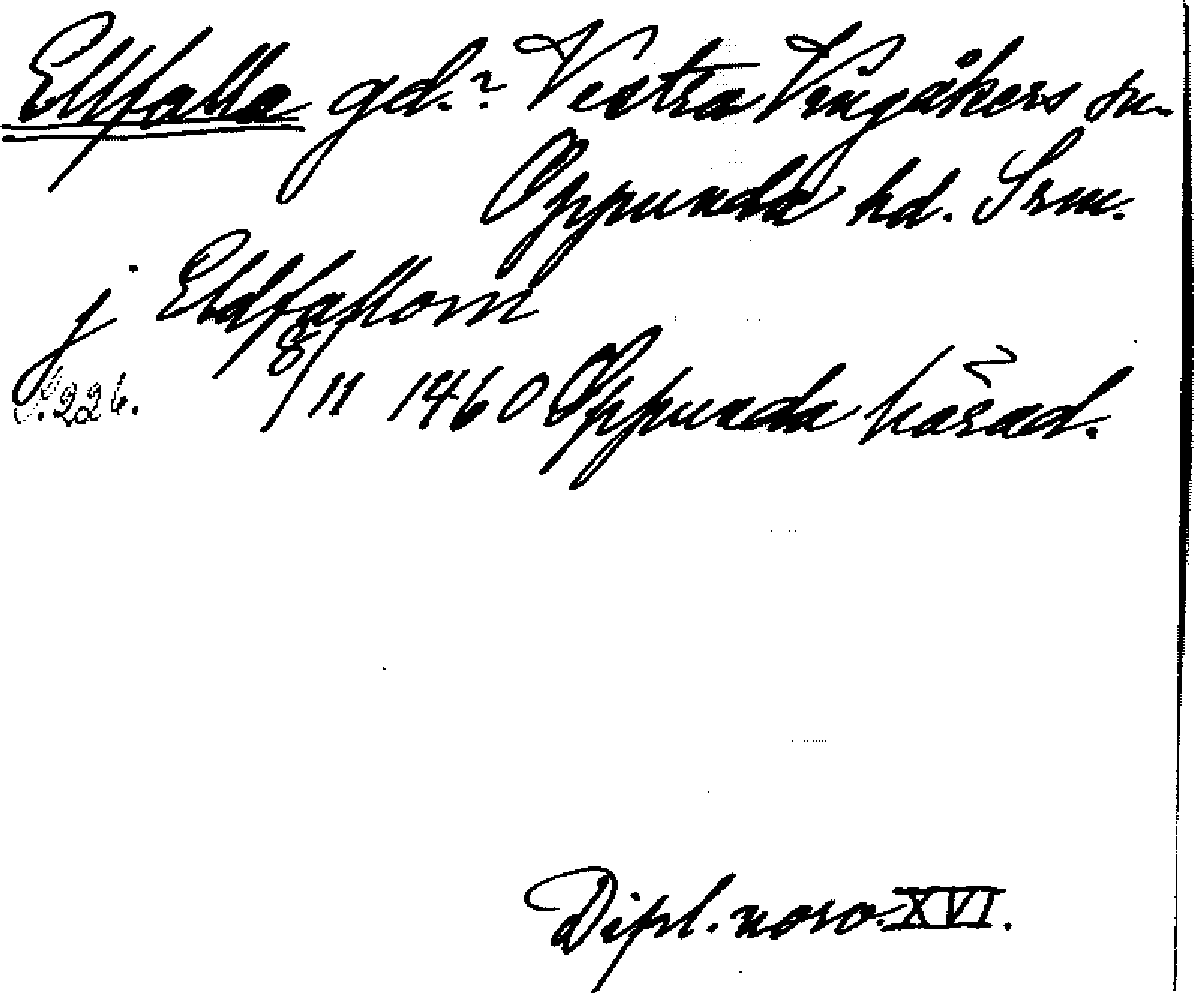 Ellfalla gd.? Vestra Vingåkers sn.
Oppunda hd. Srm.
j Eldfallom
s. 226. 8/11 1460 Oppunda härad.
Dipl. norv. XVI.